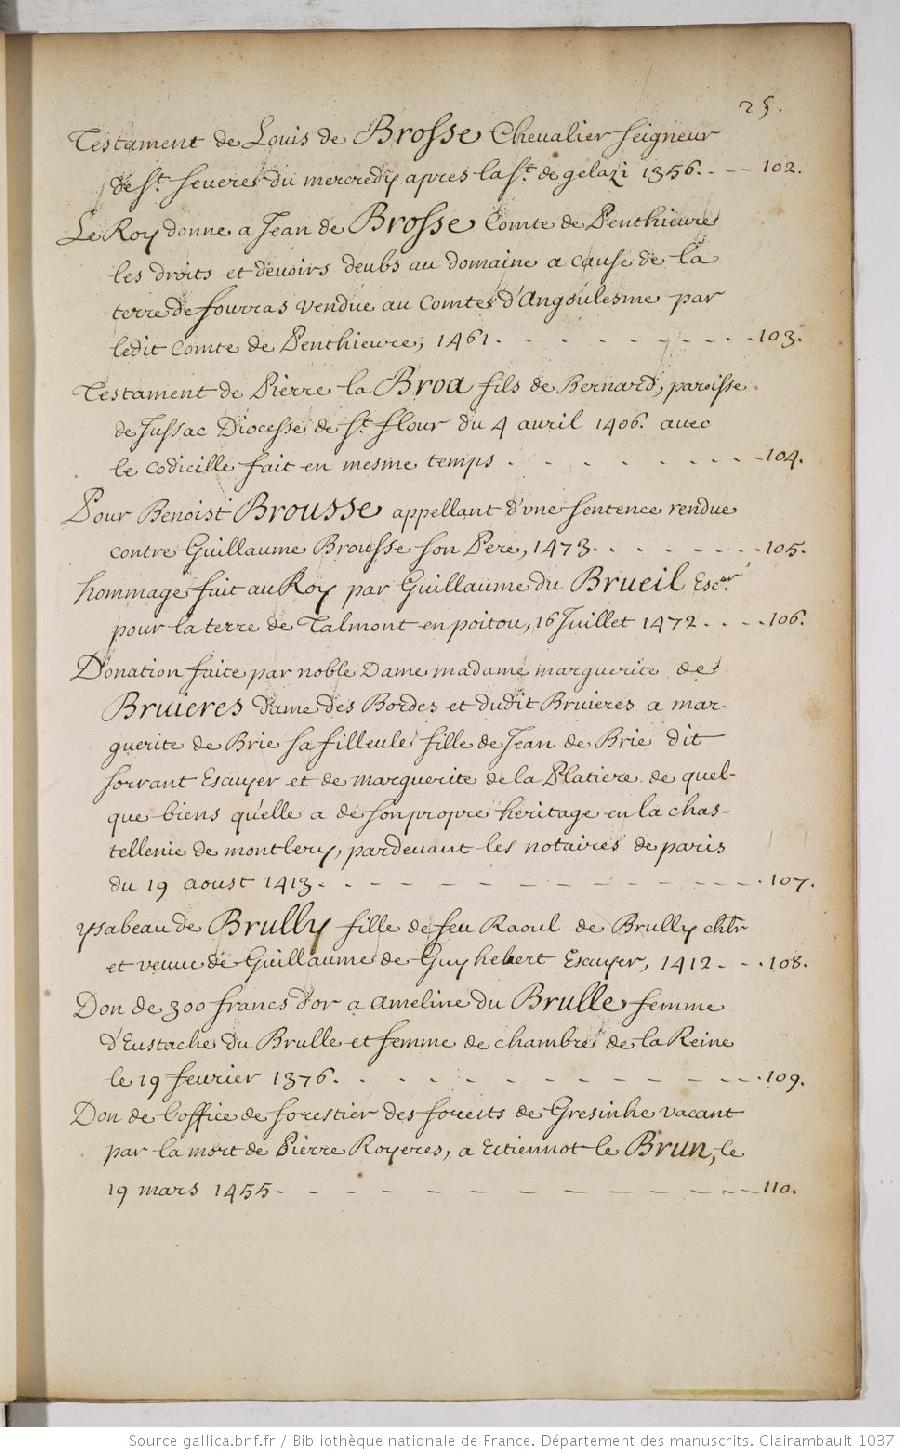 25.
Testament de Louis de Brosse Chevalier seigneur
de St. severe du mercredy apres la st. de gelazi 1356. - - - 102.
Le Roy donne a Jean de Brosse Comte de Penthieure
les droits et devoirs deubs au domaine a cause de la
terre de fourras vendue au Comtes d'Angoulesme par
ledit Comte de Penthieure, 1461. - - - - - - - - 103.
Testament de Pierre la Broa fils de Bernard, paroisse
de Jussac Diocesse de St. flour du 4 avril 1406. avec
le codicille fait en mesme temps . - - - - - - - 104.
Pour Benoist Brousse appellant d'vne sentence rendue
contre Guillaume Brousse son Pere, 1473. - - - - - - 105.
hommage fait au Roy par Guillaume du Brueil Escer.
pour la terre de Talmont en poitou, 16 Juillet 1472 - - - - 106.
Donation faite par noble Dame madame marguerite de
Bruieres dame des Bordes et dudit Bruieres a mar-
guerite de Brie sa filleule fille de Jean de Brie dit
sorrant Escuyer et de marguerite de la Platiere. de quel-
que biens qu'elle a de son propre heritage en la chas-
tellenie de montlery, pardevant les notaires de paris
du 19 aoust 1413. - - - - - - - - - - - 107.
ysabeau de Brully fille de feu Raoul de Brully chlr
et veuve de Guillaume de Guyhebert Escuyer, 1412 - - - 108.
Don de 300 francs d'or a Ameline du Brulle femme
d'Eustache du Brulle et femme de chambre de la Reine
le 19 fevrier 1376. - - - - - - - - - - - 109.
Don de l'office de forestier des forests de Gresinhe vacant
par la mort de Pierre Royeres, a Etiennot le Brun, le
19 mars 1455 - - - - - - - - - - - - 110.
Source gallica.bnf.fr / Bibliothèque nationale de France. Département des manuscrits. Clairambault 1037